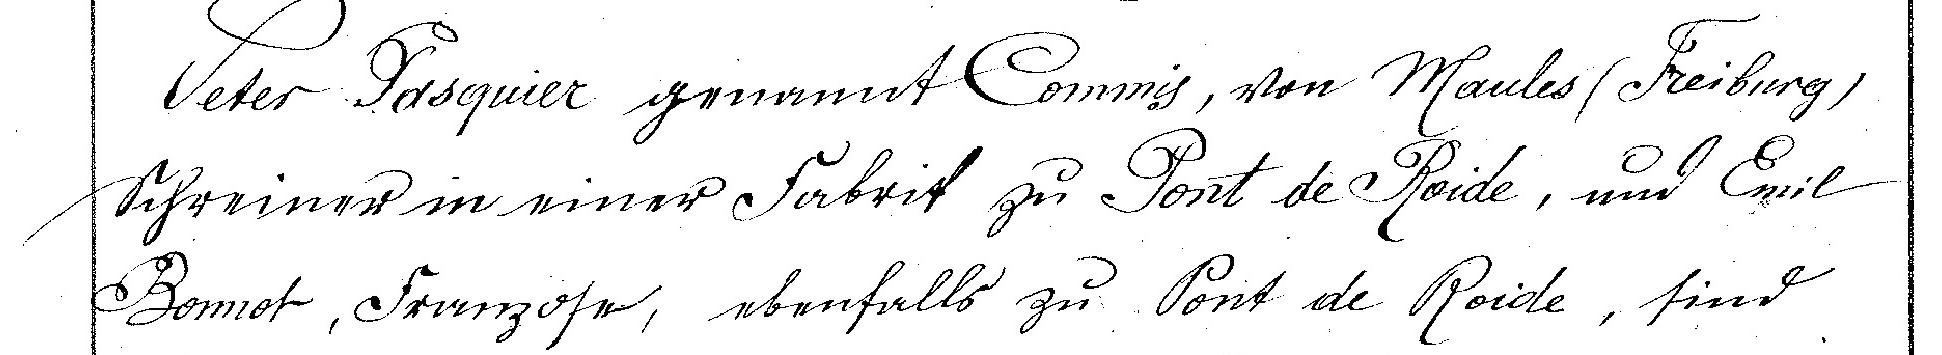 Peter Pasquier genannt Commis, von Maules (Freiburg)
Schreiner in einer Fabrik zu Pont de Roide, und Emil
Bonnot, Franzose, ebenfalls zu Pont de Roide, sind